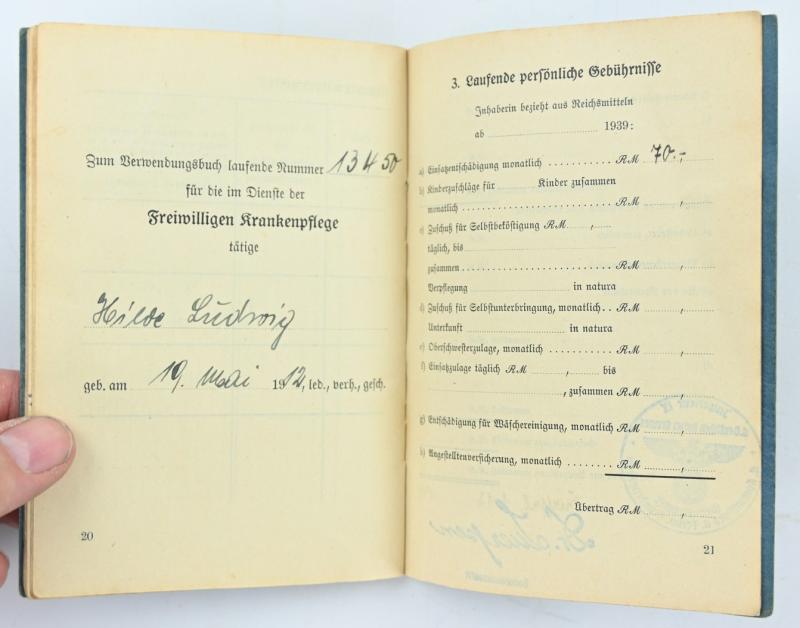 Zum Verwendungsbuch laufende Nummer 13450
für die im Dienste der
Freiwilligen Krankenpflege
tätige
Hilde Ludwig
geb. am 19. Mai 1912, led., verh., gesch.
20
3. Laufende persönliche Gebührnisse
Inhaberin bezieht aus Reichsmitteln
ab 1939:
a) Einsatzentschädigung monatlich .......... RM 70,-
b) Kinderzuschläge für ........ Kinder zusammen
monatlich .......... RM ........,........
c) Zuschuß für Selbstbeköstigung RM ......,......
täglich, bis
zusammen .......... RM ........,........
Verpflegung in natura
d) Zuschuß für Selbstunterbringung, monatlich .. RM ........,........
Unterkunft in natura
e) Oberschwesterzulage, monatlich .......... RM ........,........
f) Einsatzzulage täglich RM ........,........ bis
, zusammen RM ........,........
g) Entschädigung für Wäschereinigung, monatlich RM ........,........
h) Angestelltenversicherung, monatlich ........ RM ........,........
Übertrag RM ........,........
21